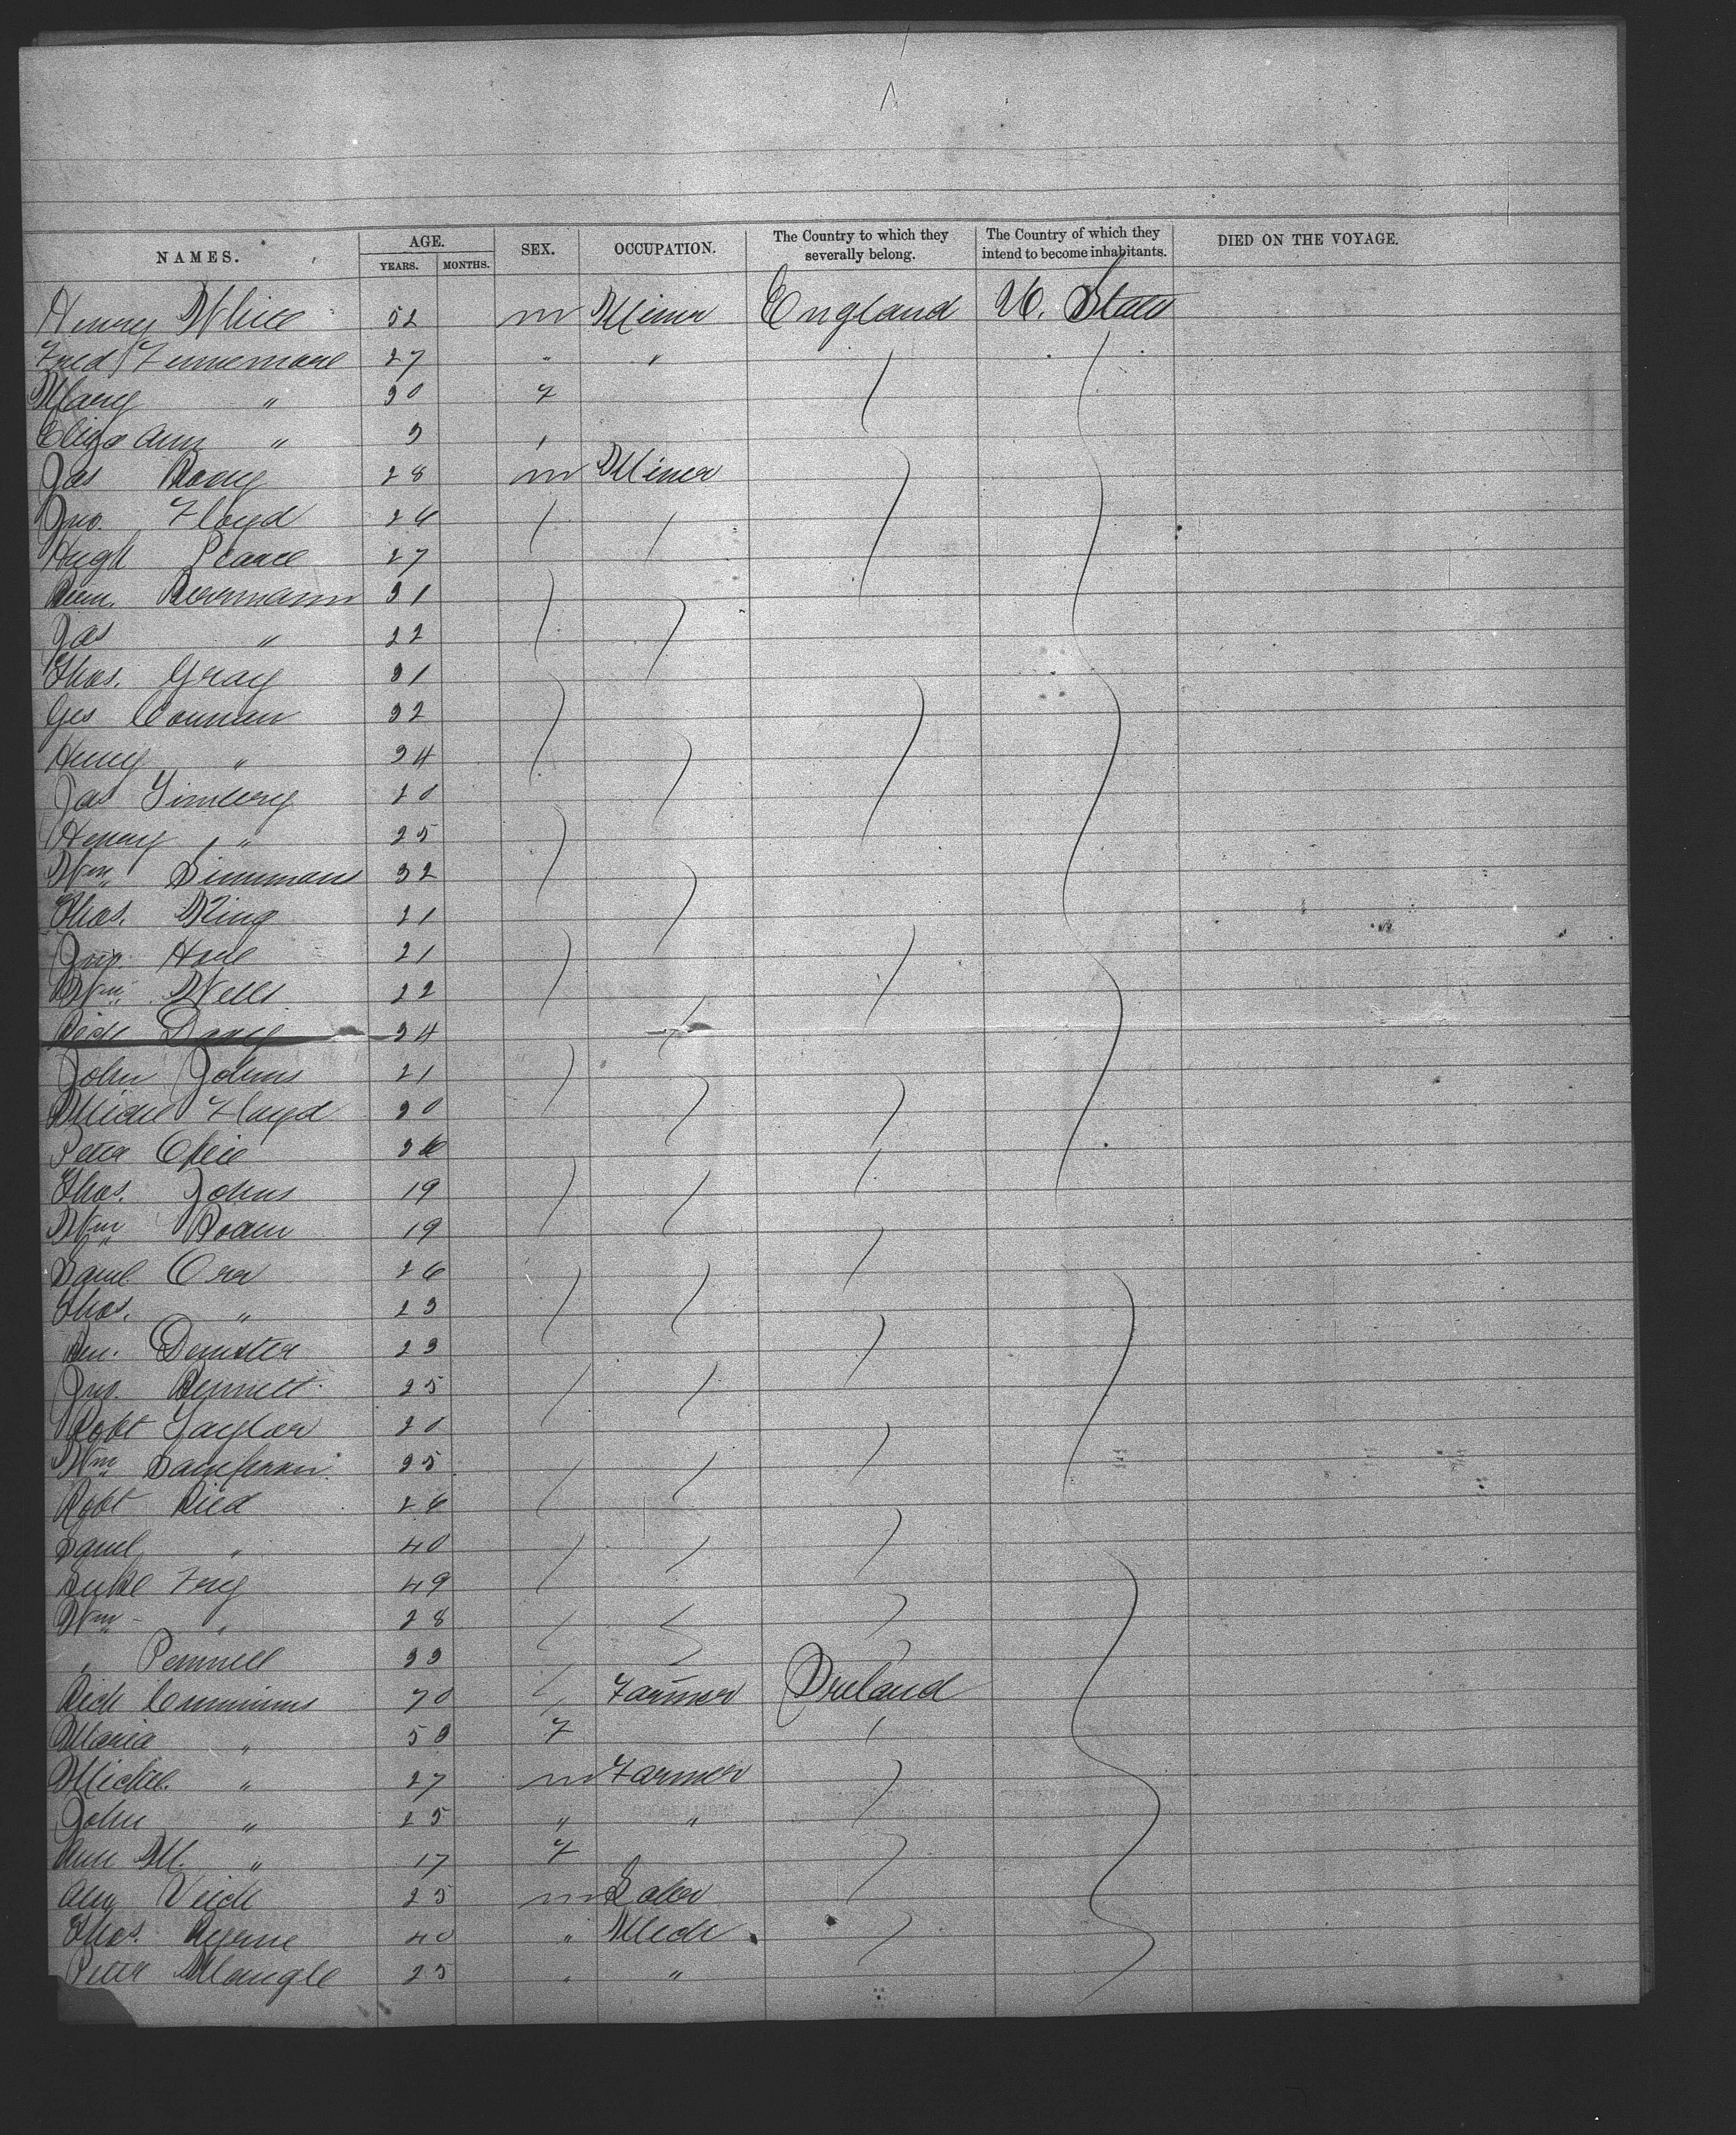 NAMES. AGE. YEARS. MONTHS. SEX. OCCUPATION. The Country to which they severally belong. The Country of which they intend to become inhabitants. DIED ON THE VOYAGE.
Henry White 52 m Miner England U. States
Fred Finnemore 27 " "
Mary " 30 F
Eliza Ann " 3 "
Jas 28 m Miner
Jno. Floyd 26
Hugh Pearce 27
31
Jas " 22
Thos. Gray 31
Geo 32
Henry " 34
Jas 20
Henry " 25
Wm Simmons 32
Thos. King 21
Jno. 21
Wm Wells 22
Rich 34
John Johns 21
Floyd 30
Peter 36
Thos. Johns 19
Wm 19
Saml Orr 26
Thos. " 23
23
Jno. Bennett 25
Robt Taylor 20
Wm Sampson 35
Robt Ried 26
Saml " 40
Luke Fry 49
Wm " 28
" 33
Rich Cummins 70 Farmer Ireland
Maria " 50 F
Michl. " 27 m Farmer
John " 25 " "
Ann M. " 17 F
Veich 25 m Labr
Thos. Byrne 40 " Mech
Peter Mangle 25 " "